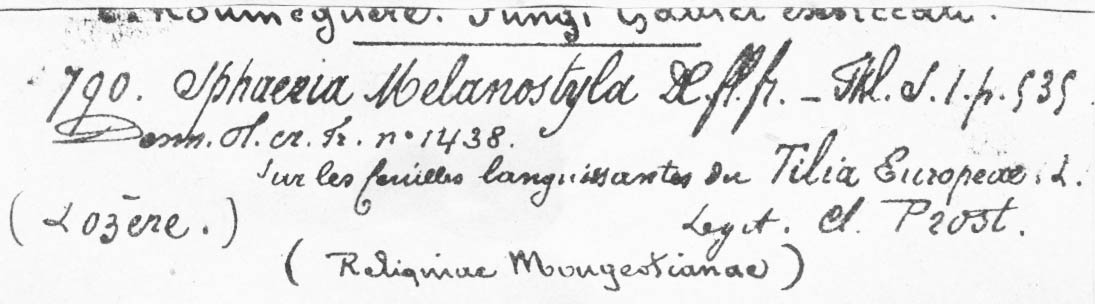 C. Roumeguère. Fungi Gallici exsiccati.
790. Sphaeria Melanostyla DC. fl. fr. – Thl. S. 1. p. 535
Desm. Pl. cr. Fr. n° 1438.
Sur les feuilles languissantes du Tilia Europeae. L.
(Lozère.) Legit. Cl. Prost.
(Reliquiae Mougeotianae)